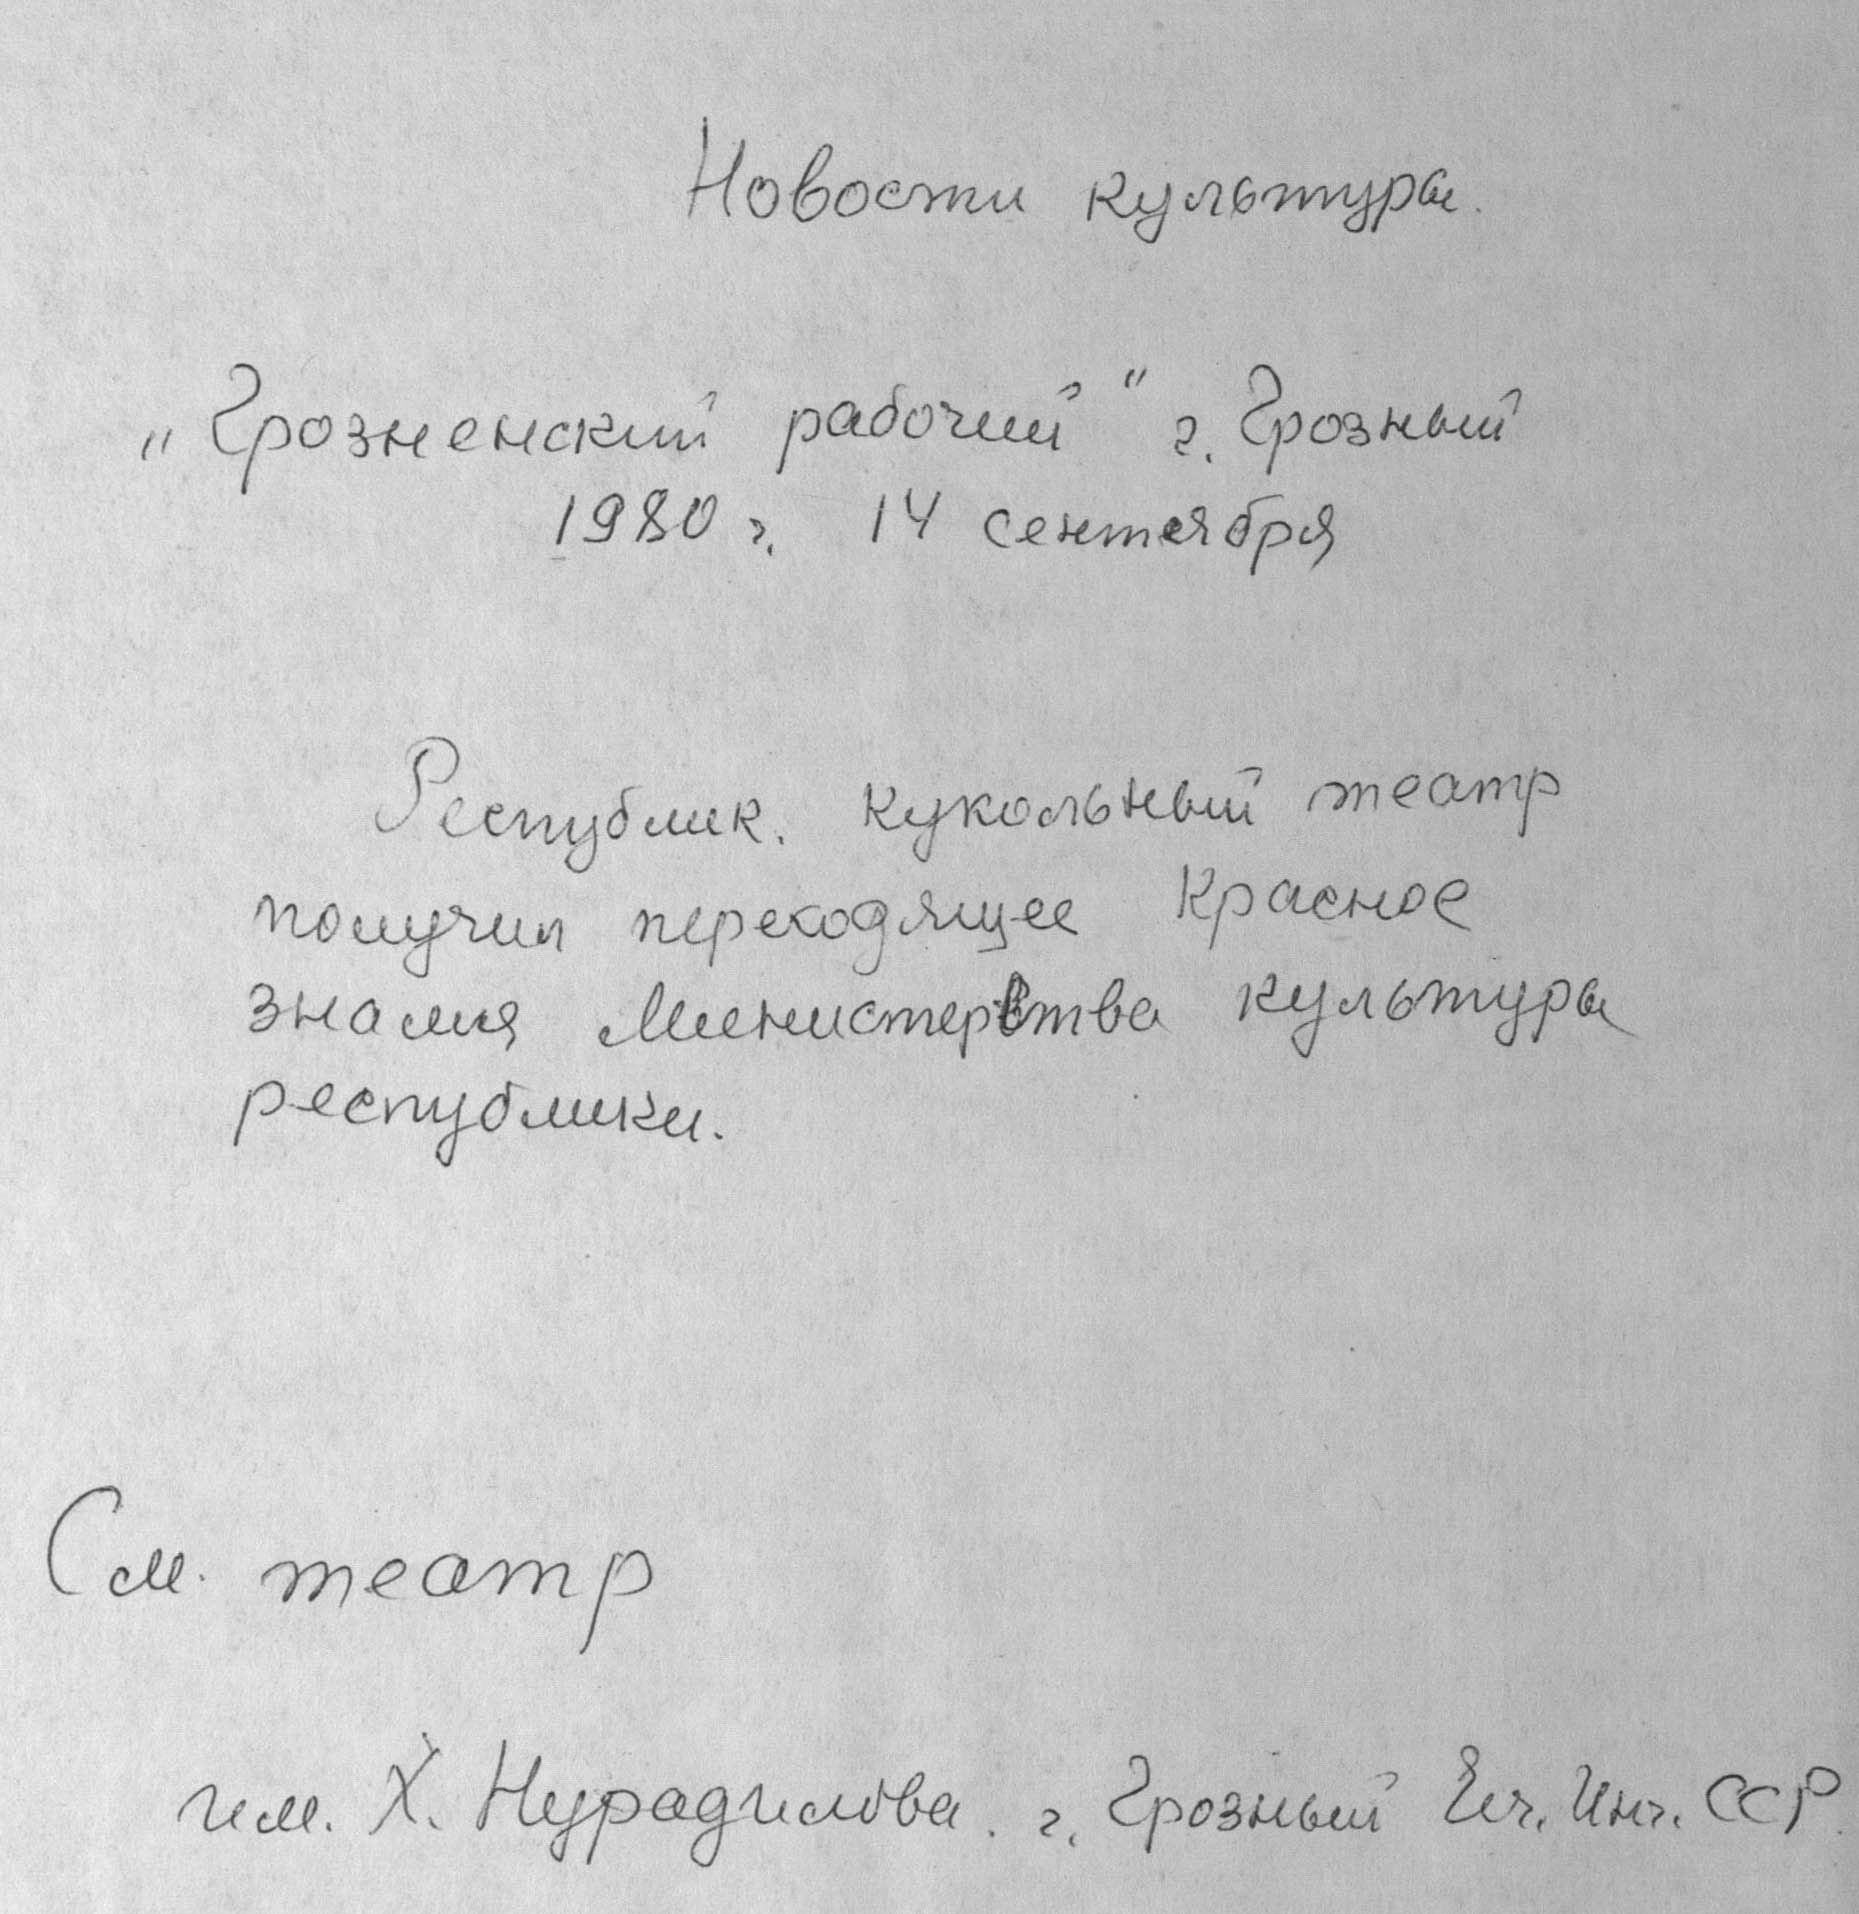 Новости культуры.
„Грозненский рабочий" г. Грозный
1980 г. 14 сентября
Республик. кукольный театр
получил переходящее Красное
знамя Министерства культуры
республики.
См. театр
им. Х. Нурадилова. г. Грозный Инг. ССР